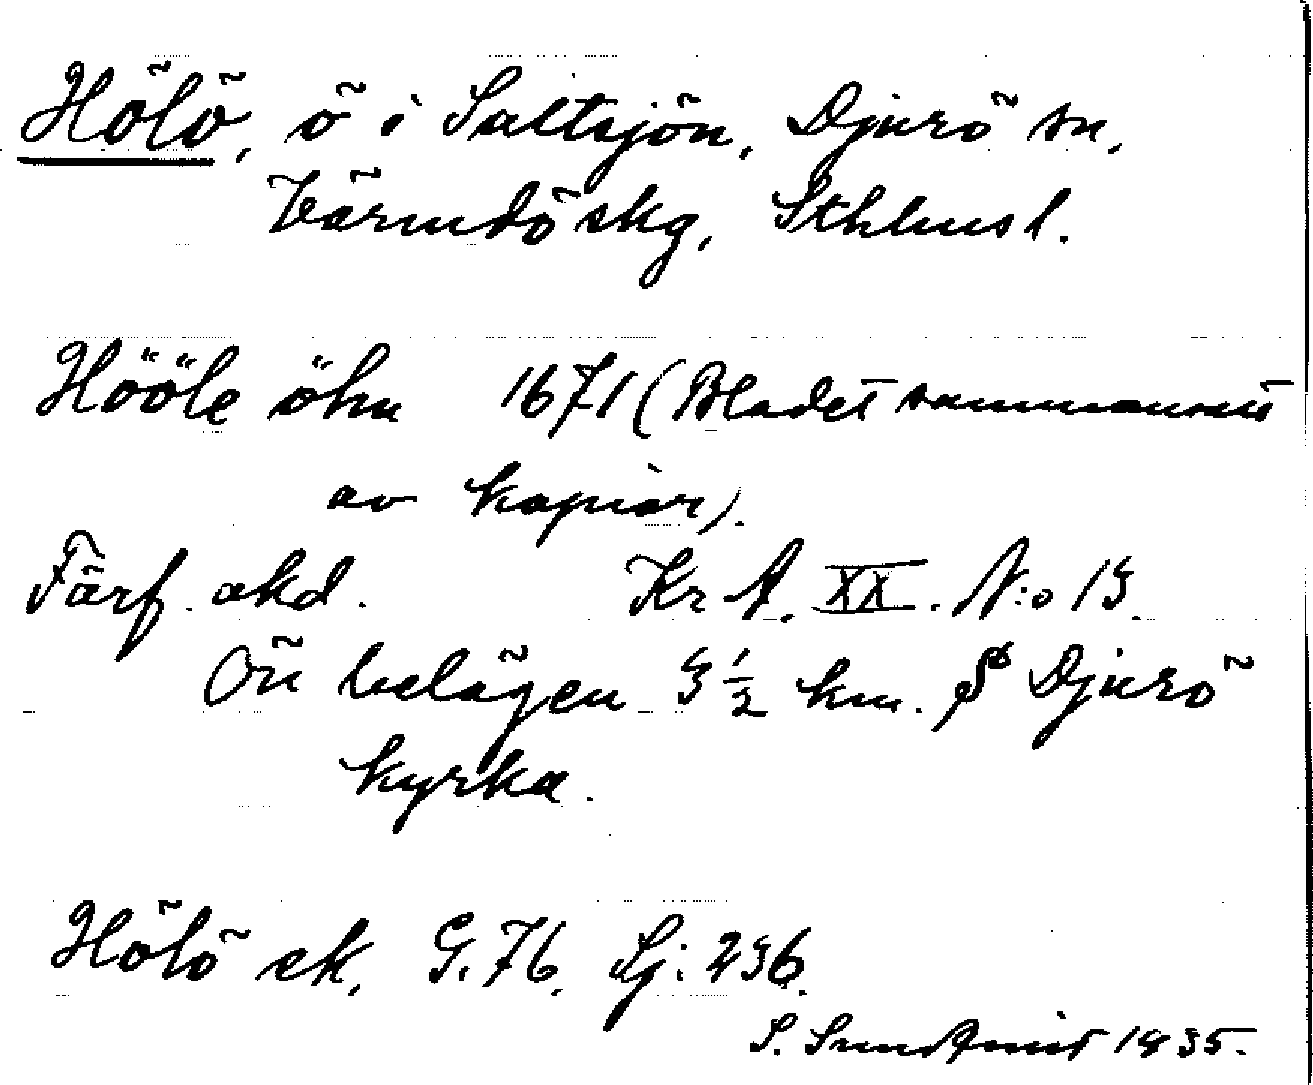 Hölö, ö i Saltsjön, Djurö sn,
Värmdö skg, Sthlms l.
Hööle öhn 1671 (Bladet sammansatt
av kopior).
Färf. akd. Kr A. XX. N:o 13.
Ön belägen 3 1/2 km. S Djurö
kyrka.
Hölö ek, G. 76. Sj: 236.
S. Sundqvist 1935.